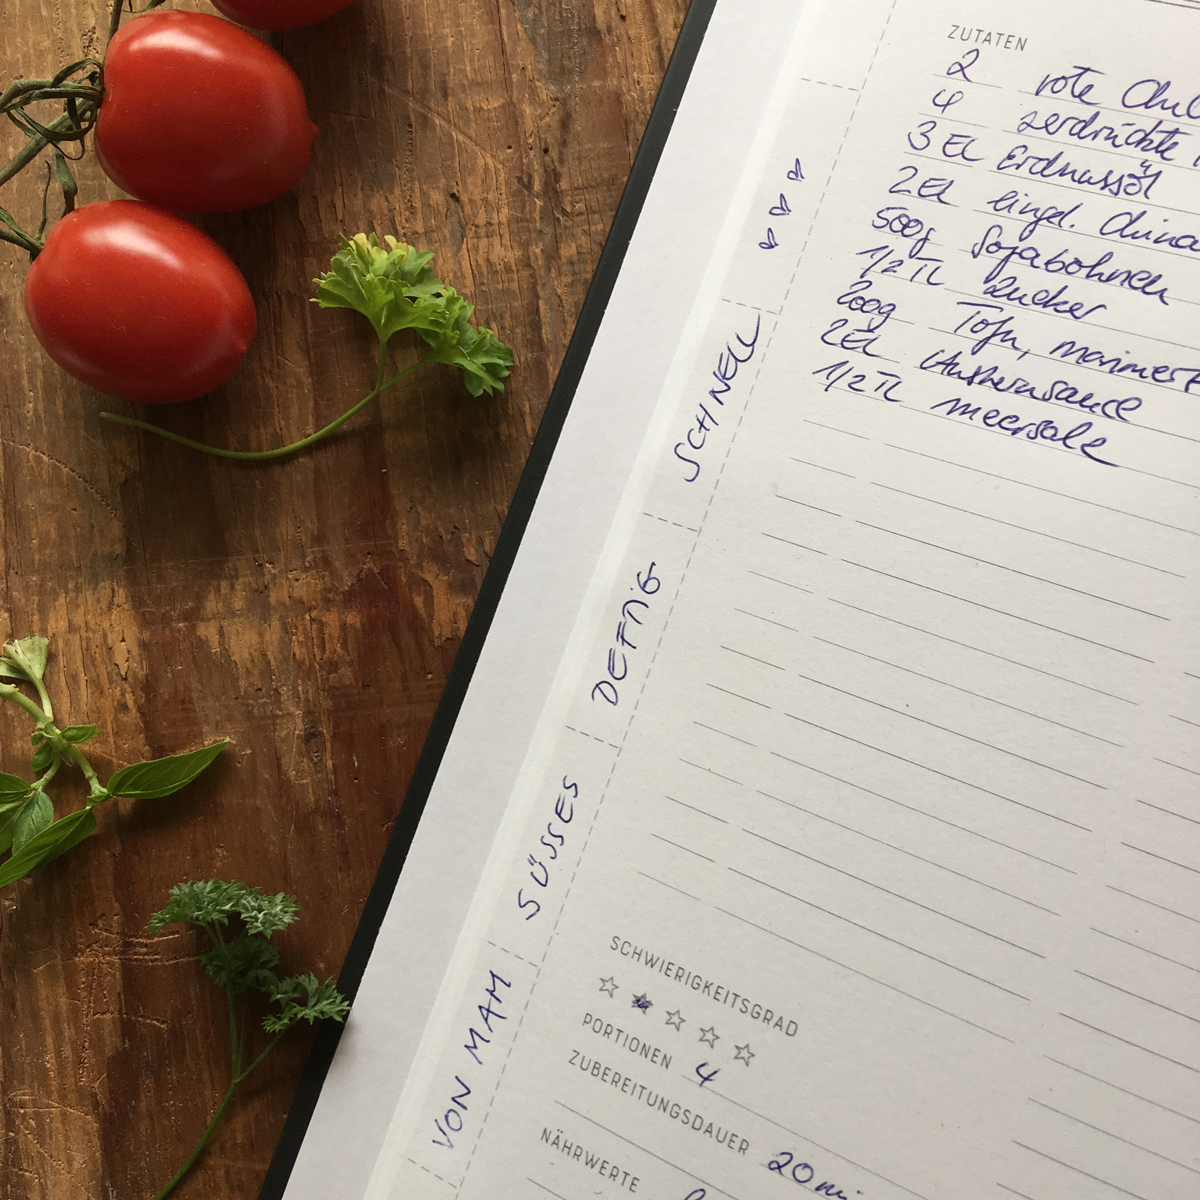 ZUTATEN
2 rote
4 zerdrückte
3 EL Erdnussöl
2 EL eingel.
500g Sojabohnen
1/2 TL Zucker
200g Tofu, mariniert
2 EL Austernsauce
1/2 TL Meersalz
SCHNELL
DEFTIG
SÜSSES
VON MAM
SCHWIERIGKEITSGRAD
PORTIONEN 4
ZUBEREITUNGSDAUER 20
NÄHRWERTE